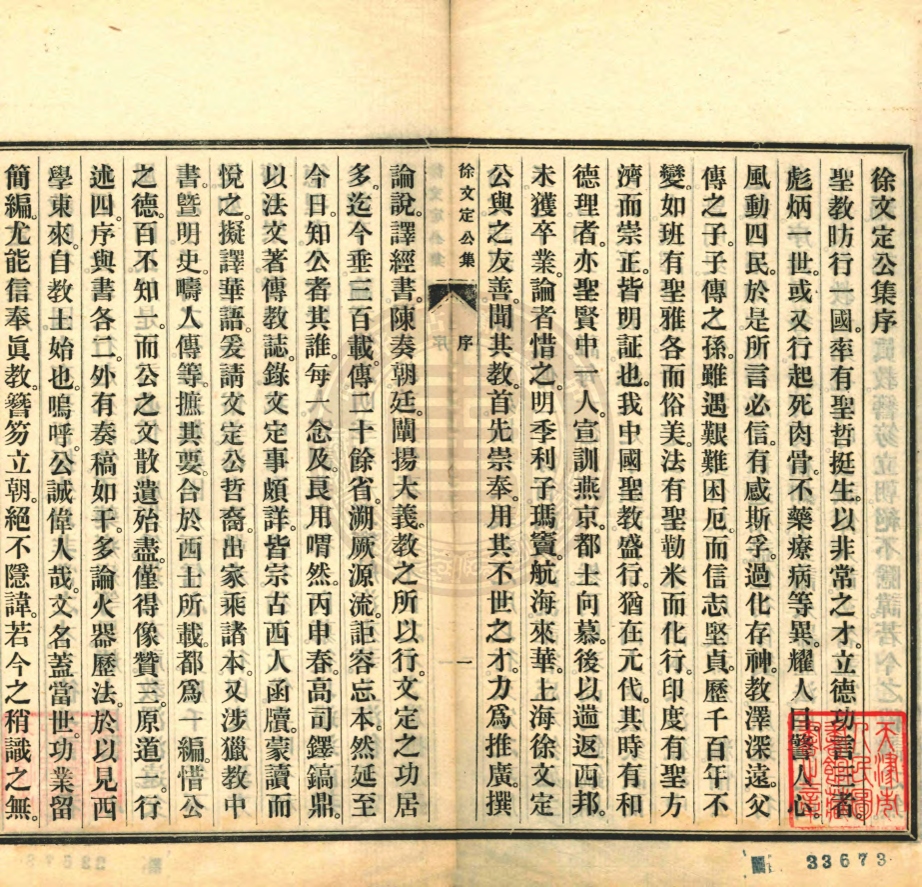 徐文定公集序
聖教昉行一國。率有聖哲挺生。以非常之才。立德功言三者。
彪炳一世。或又行起死肉骨。不藥療病等異。耀人目。警人心。
風動四民。於是所言必信。有感斯孚。過化存神。教澤深遠。父
傳之子。子傳之孫。雖遇艱難困厄。而信志堅貞。歷千百年不
變。如班有聖雅各而俗美。法有聖勒米而化行。印度有聖方
濟而崇正。皆明証也。我中國聖教盛行。猶在元代。其時有和
德理者。亦聖賢中一人。宣訓燕京。都士向慕。後以遄返西邦。
未獲卒業。論者惜之。明季利子瑪竇。航海來華。上海徐文定
公與之友善。聞其教。首先崇奉。用其不世之才。力爲推廣。撰
徐文定公集
序
一
論說。譯經書。陳奏朝廷。闡揚大義。教之所以行。文定之功居
多。迄今垂三百載。傳二十餘省。溯厥源流。詎容忘本。然延至
今日。知公者其誰。每一念及。良用喟然。丙申春。高司鐸鎬鼎。
以法文著傳教誌。錄文定事頗詳。皆宗古西人函牘。蒙讀而
悅之。擬譯華語。爰請文定公哲裔。出家乘諸本。又涉獵教中
書。曁明史。疇人傳等。摭其要。合於西士所載。都爲一編。惜公
之德。百不知一。而公之文散遺殆盡。僅得像贊三。原道一。行
述四。序與書各二。外有奏稿如干。多論火器歷法。於以見西
學東來。自教士始也。嗚呼。公誠偉人哉。文名蓋當世。功業留
簡編。尤能信奉眞教。簪笏立朝。絕不隱諱。若今之稍識之無。
33673